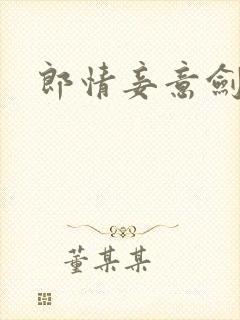 郎情妾意劍
董某某